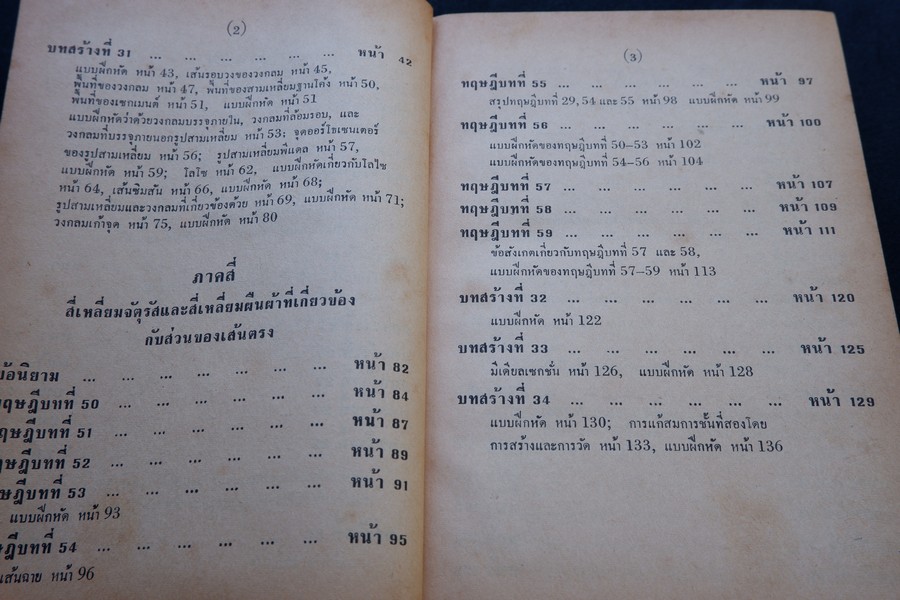 (2)
บทสร้างที่ 31 ... ... ... ... ... ... หน้า 42
แบบฝึกหัด หน้า 43, เส้นรอบวงของวงกลม หน้า 45,
พื้นที่ของวงกลม หน้า 47, พื้นที่ของสามเหลี่ยมฐานโค้ง หน้า 50,
พื้นที่ของเซกเมนต์ หน้า 51, แบบฝึกหัด หน้า 51
แบบฝึกหัดว่าด้วยวงกลมบรรจุภายใน, วงกลมที่ล้อมรอบ, และ
วงกลมที่บรรจุภายนอกรูปสามเหลี่ยม หน้า 53; จุดออร์โธเซนเตอร์
ของรูปสามเหลี่ยม หน้า 56; รูปสามเหลี่ยมพีแดล หน้า 57,
แบบฝึกหัด หน้า 59; โลไซ หน้า 62, แบบฝึกหัดเกี่ยวกับโลไซ
หน้า 64, เส้นซิมสัน หน้า 66, แบบฝึกหัด หน้า 68;
รูปสามเหลี่ยมและวงกลมที่เกี่ยวข้องด้วย หน้า 69, แบบฝึกหัด หน้า 71;
วงกลมเก้าจุด หน้า 75, แบบฝึกหัด หน้า 80
ภาคสี่
สี่เหลี่ยมจัตุรัสและสี่เหลี่ยมผืนผ้าที่เกี่ยวข้อง
กับส่วนของเส้นตรง
บ้อนิยาม ... ... ... ... ... ... หน้า 82
ฤษฎีบทที่ 50 ... ... ... ... ... หน้า 84
ฤษฎีบทที่ 51 ... ... ... ... ... หน้า 87
ฤษฎีบทที่ 52 ... ... ... ... ... หน้า 89
ษฎีบทที่ 53 ... ... ... ... ... หน้า 91
แบบฝึกหัด หน้า 93
ฎีบทที่ 54 ... ... ... ... ... หน้า 95
เส้นฉาย หน้า 96
(3)
ทฤษฎีบทที่ 55 ... ... ... ... ... หน้า 97
สรุปทฤษฎีบทที่ 29, 54 และ 55 หน้า 98 แบบฝึกหัด หน้า 99
ทฤษฎีบทที่ 56 ... ... ... ... ... หน้า 100
แบบฝึกหัดของทฤษฎีบทที่ 50–53 หน้า 102
แบบฝึกหัดของทฤษฎีบทที่ 54–56 หน้า 104
ทฤษฎีบทที่ 57 ... ... ... ... ... หน้า 107
ทฤษฎีบทที่ 58 ... ... ... ... ... หน้า 109
ทฤษฎีบทที่ 59 ... ... ... ... ... หน้า 111
ข้อสังเกตเกี่ยวกับทฤษฎีบทที่ 57 และ 58,
แบบฝึกหัดของทฤษฎีบทที่ 57–59 หน้า 113
บทสร้างที่ 32 ... ... ... ... ... หน้า 120
แบบฝึกหัด หน้า 122
บทสร้างที่ 33 ... ... ... ... ... หน้า 125
มีเดียลเซกชั่น หน้า 126, แบบฝึกหัด หน้า 128
บทสร้างที่ 34 ... ... ... ... ... หน้า 129
แบบฝึกหัด หน้า 130; การแก้สมการชั้นที่สองโดย
การสร้างและการวัด หน้า 133, แบบฝึกหัด หน้า 136